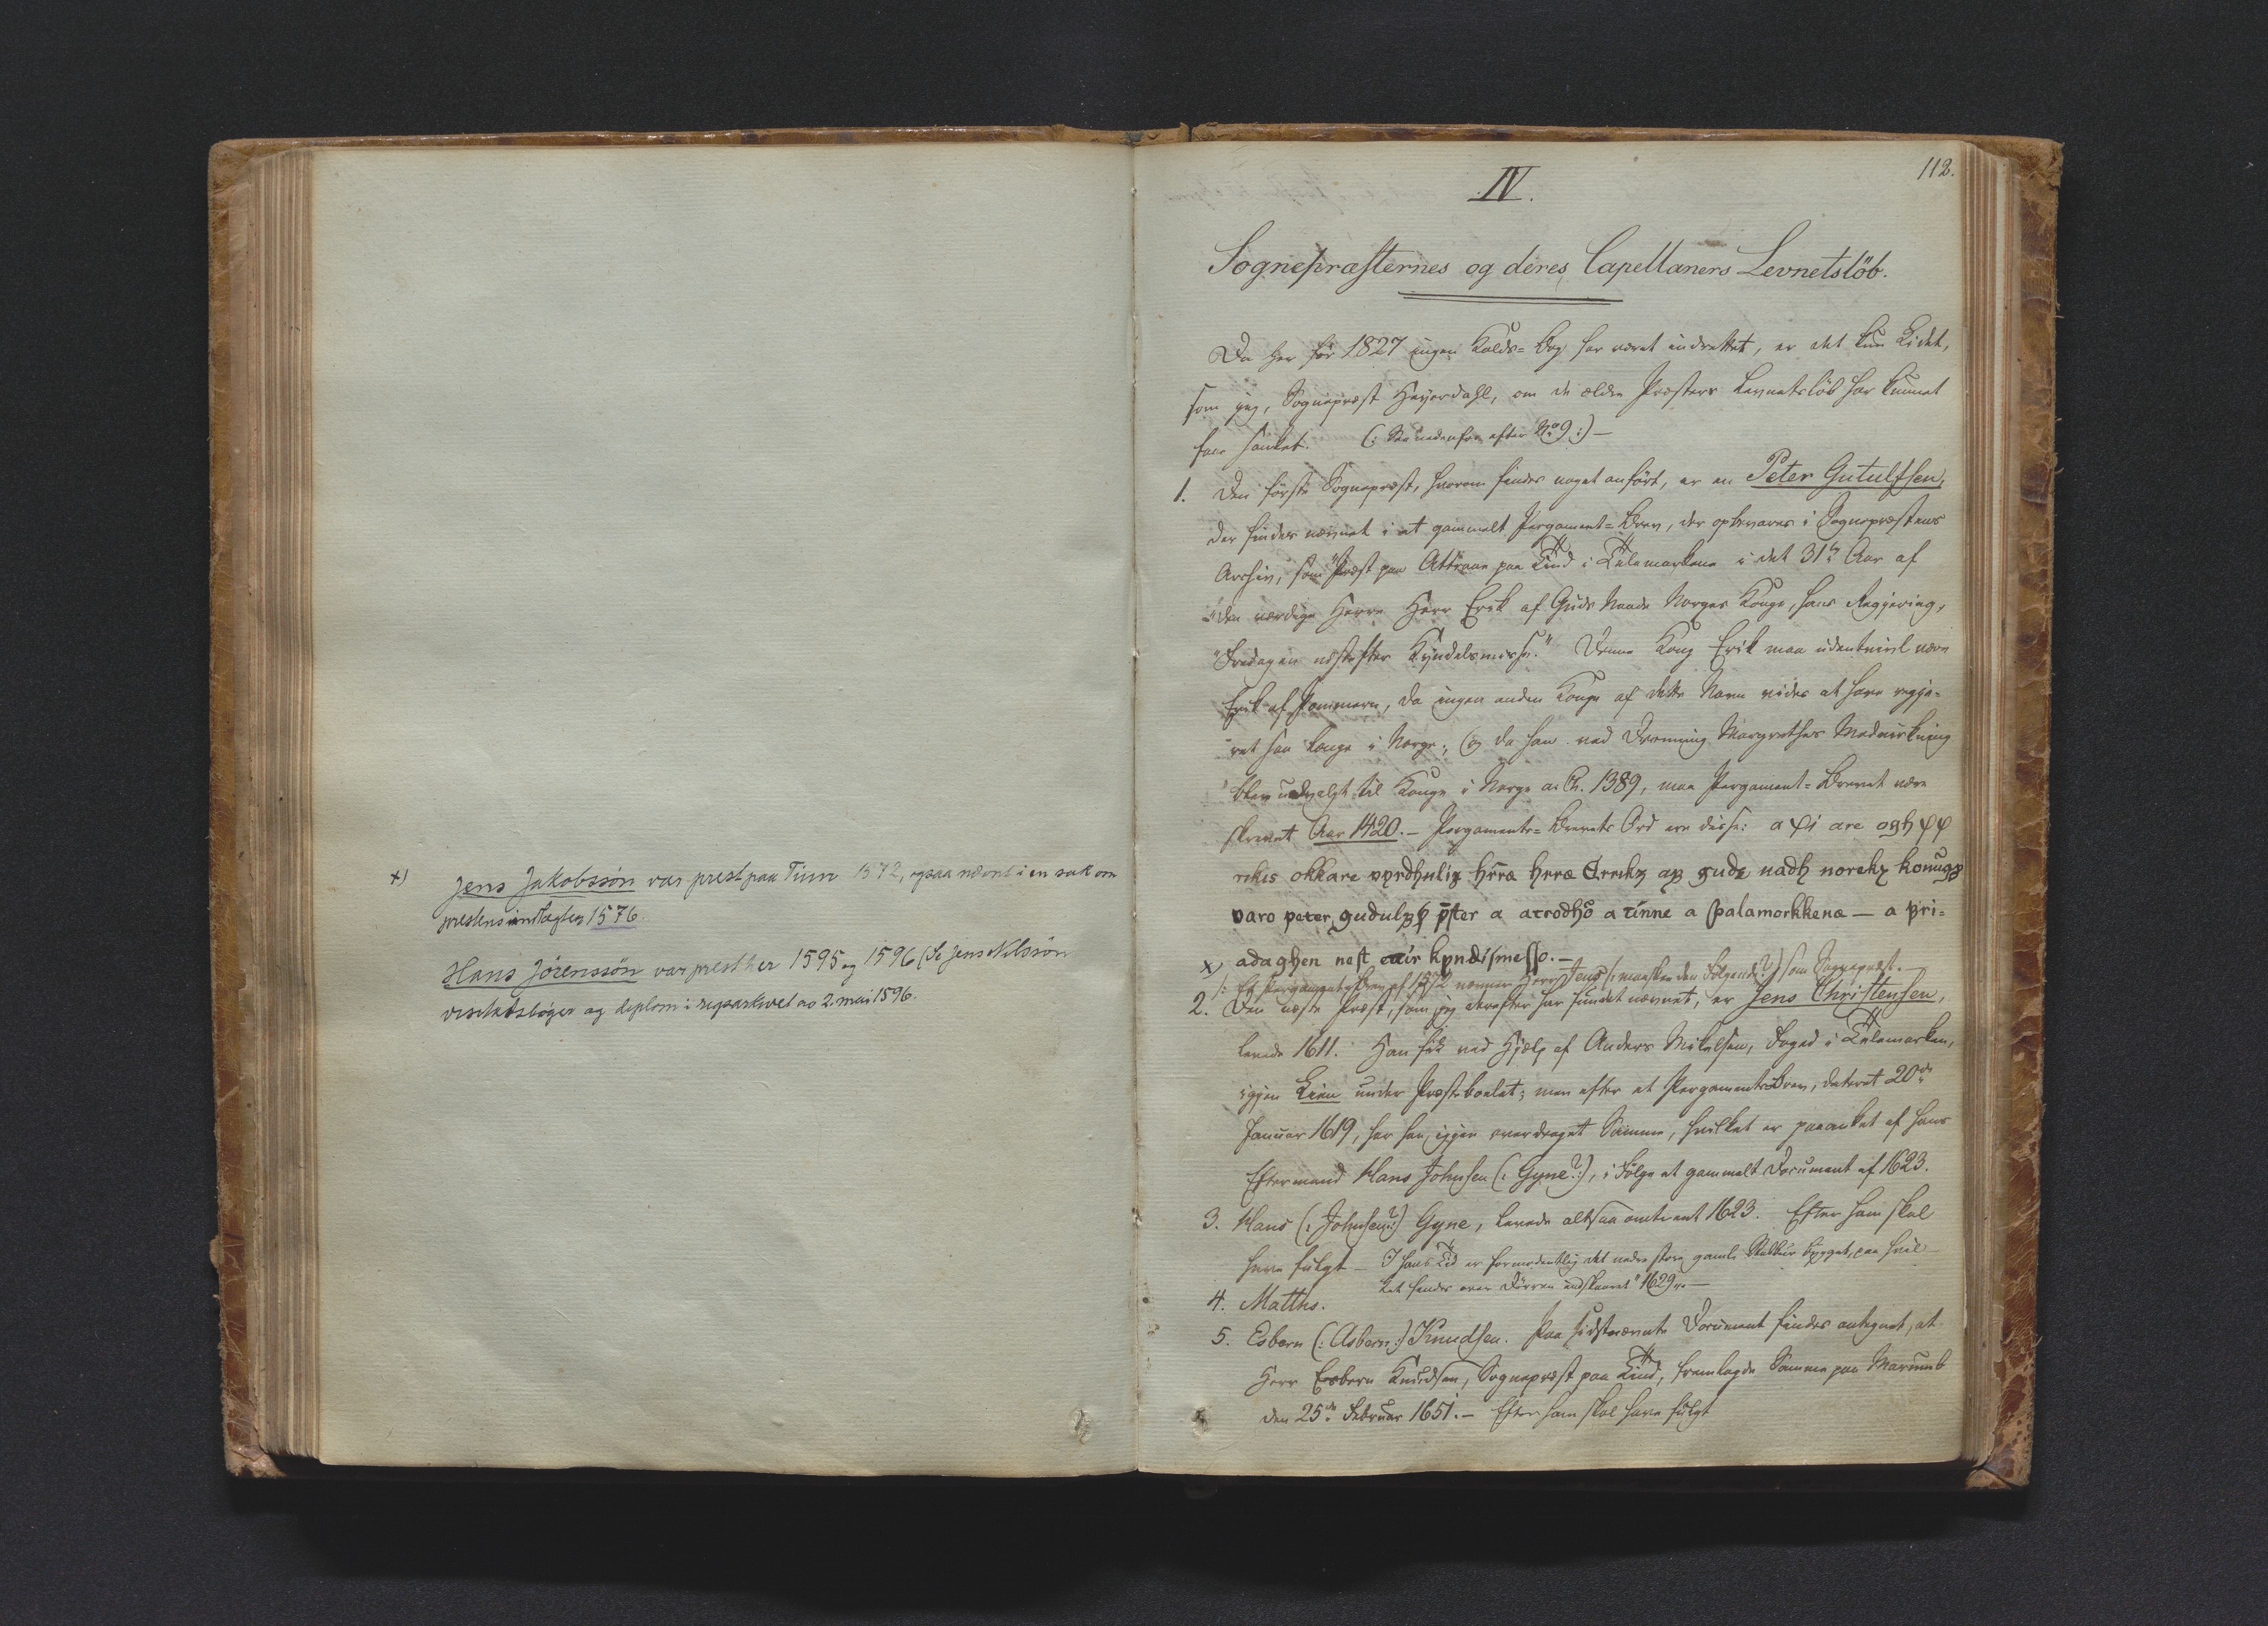 x) Jens Jakobssön var prest paa Tinn 1572, ogsaa nævnt i en sak om
prestens indtægter 1576.
Hans Jörenssön var prest her 1595 og 1596 (Se Jens Nilssön
visitatsbøger og diplom i rigsarkivet av 2. mai 1596.
112.
IV.
Sognepræsternes og deres Capellaners Levnetslöb.
Da her för 1827 ingen Kalds-Bog har været indrettet, er det kun Lidet,
som jeg, Sognepræst Heyerdahl, om de ældre Præsters Levnetslöb har kunnet
faae samlet. (: See nedenfor efter No 9 :) —
1. Den förste Sognepræst, hvorom findes noget anfört, er en Peter Gutulfsen,
der findes nævnet i et gammelt Pergament-Brev, der opbevares i Sognepræstens
Archiv, som "Præst paa Attraae paa Tind i Tellemarken i det 31te Aar af
"den værdige Herre Herr Erik af Guds Naade Norges Konge, hans Regjering,
"Fredagen næst efter Kyndelsmisse." Denne Kong Erik maa udentvivl være
Erik af Pommern, da ingen anden Konge af dette Navn vides at have regje-
ret saa længe i Norge; og da han ved Dronning Margrethes Medvirkning
blev udvalgt til Konge i Norge a: Ch. 1389, maa Pergament-Brevet være
skrevet Aar 1420. — Pergaments-Brevets Ord ere disse: a xi are ogh xx
rikis okkare vyrdhuliz hrra herra Erriks af gudz nadh noreks konugs
varo peter gudulfs pster a atrodho a tinne a þalamorkkenæ — a fri-
x) adaghen nest eftir kyndismesso. —
/: Et Pergaments-Brev af 1572 nævner Herr Jens (maaskee den Følgende?) som Sognepræst. —
2. Den næste Præst, som jeg derefter har fundet nævnet, er Jens Christensen,
levede 1611. Han fik ved Hjælp af Anders Mikelsen, Foged i Tellemarken,
igjen Lien under Præsteboelet; men efter et Pergaments Brev, dateret 20de
Januar 1619, har han igjen overdraget Samme, hvilket er paaanket af hans
Eftermand Hans Johnsen (: Gyne? :), i Fölge et gammelt Document af 1623.
3. Hans (: Johnsen? :) Gyne, levede altsaa omtrent 1623. Efter ham skal
have fulgt — I hans Tid er formodentlig det nedre store gamle Stabbur bygget, paa hvil-
ket findes over Dörren indskaaret "1629". —
4. Matths.
5. Esbern (: Asbern :) Knudsen. Paa sidstnævnte Document findes antegnet, at
Herr Esbern Knudsen, Sognepræst paa Tind, fremlagde Samme paa Marumb
den 25de Februar 1651. — Efter ham skal have fulgt